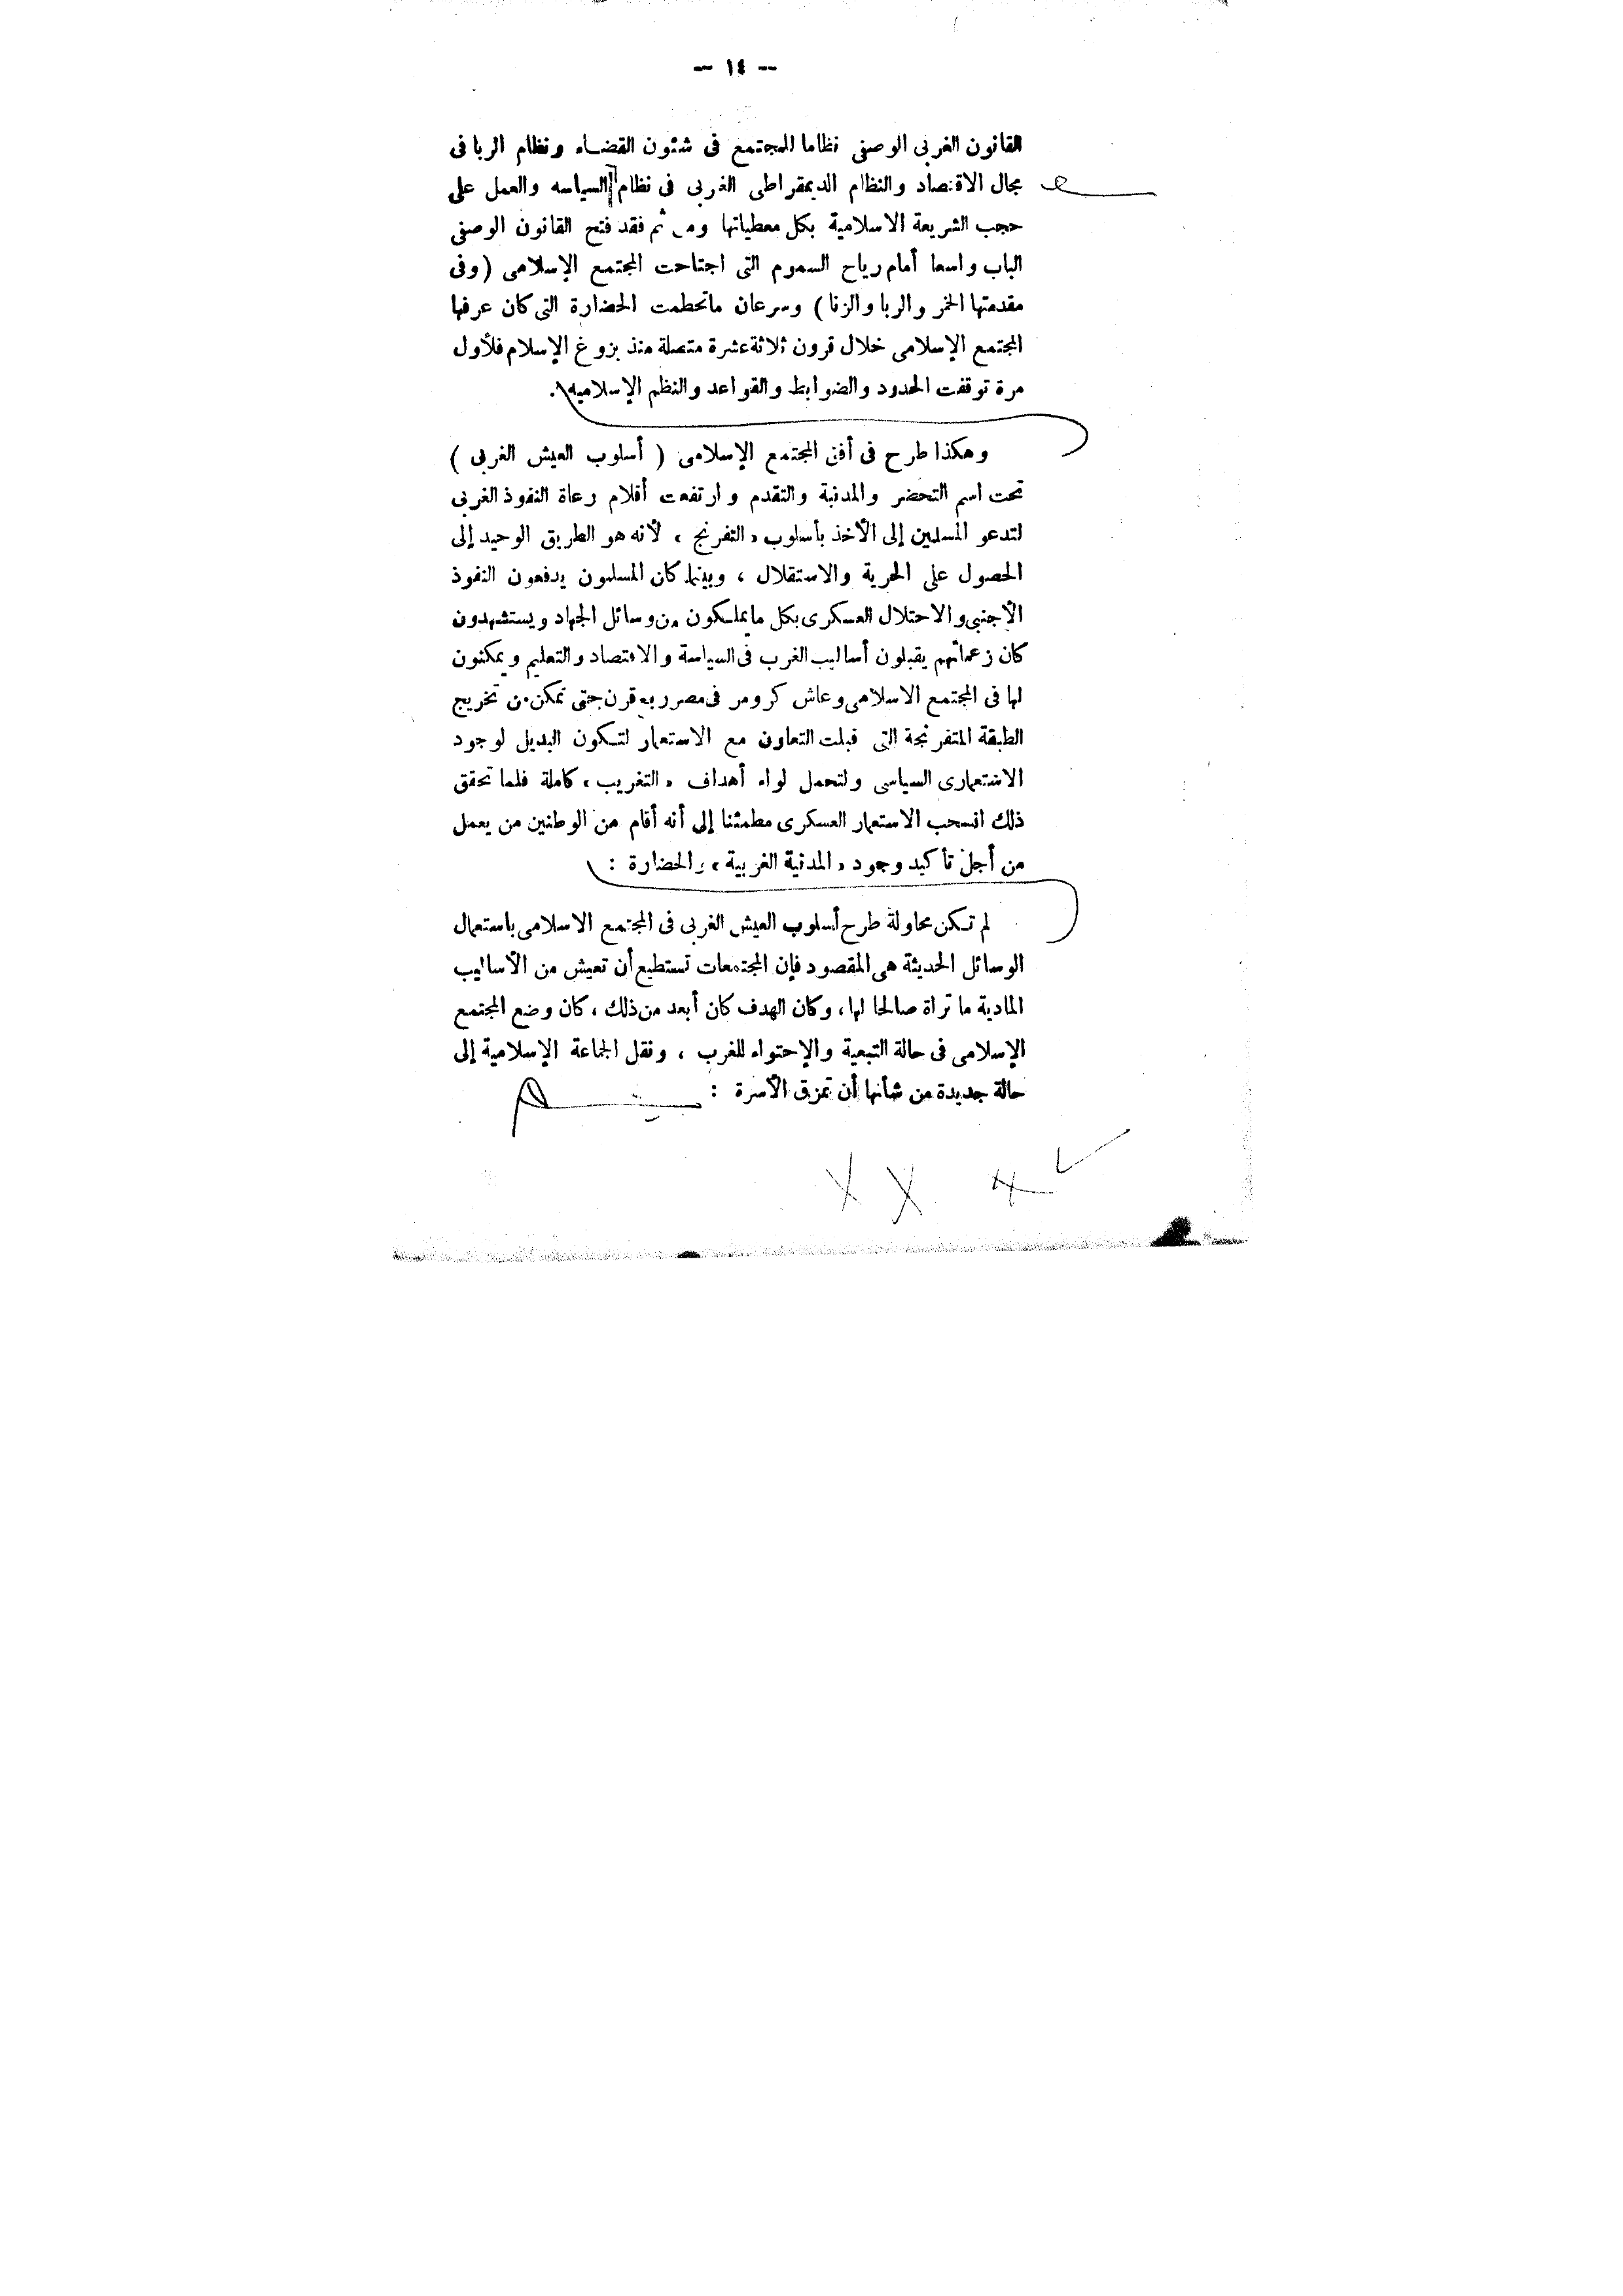 — ١٤ —
القانون الغربى الوصفى نظاما للمجتمع فى شئون القضاء ونظام الربا فى
مجال الاقتصاد والنظام الديمقراطى الغربى فى نظام السياسه والعمل على
حجب الشريعة الاسلامية بكل معطياتها ومن ثم فقد فتح القانون الوصفى
الباب واسعا أمام رياح السموم التى اجتاحت المجتمع الإسلامى (وفى
مقدمتها الخمر والربا والزنا) وسرعان ماتحطمت الحضارة التى كان عرفها
المجتمع الإسلامى خلال قرون ثلاثة عشرة متصلة منذ بزوغ الإسلام فلأول
مرة توقفت الحدود والضوابط والقواعد والنظم الإسلاميه.
وهكذا طرح فى أفق المجتمع الإسلامى ( أسلوب العيش الغربى )
تحت اسم التحضر والمدنية والتقدم وارتفعت أقلام رعاة النفوذ الغربى
لتدعو المسلمين إلى الأخذ بأسلوب «التفرنج» لأنه هو الطريق الوحيد إلى
الحصول على الحرية والاستقلال ، وبينما كان المسلمون يدفعون النفوذ
الأجنبى والاحتلال العسكرى بكل مايملكون من وسائل الجهاد ويستشهدون
كان زعمائهم يقبلون أساليب الغرب فى السياسة والاقتصاد والتعليم ويمكنون
لها فى المجتمع الاسلامى وعاش كرومر فى مصر ربع قرن حتى تمكن من تخريج
الطبقة المتفرنجة التى قبلت التعاون مع الاستعمار لتكون البديل لوجود
الاستعمارى السياسى ولتحمل لواء أهداف «التغريب» كاملة فلما تحقق
ذلك انسحب الاستعمار العسكرى مطمئنا إلى أنه أقام من الوطنين من يعمل
من أجل تأكيد وجود «المدنية الغربية» والحضارة :
لم تكن محاولة طرح أسلوب العيش الغربى فى المجتمع الاسلامى باستعمال
الوسائل الحديثة هى المقصود فإن المجتمعات تستطيع أن تعيش من الأساليب
المادية ما تراة صالحا لها، وكان الهدف كان أبعد من ذلك ، كان وضع المجتمع
الإسلامى فى حالة التبعية والإحتواء للغرب ، ونقل الجماعة الإسلامية إلى
حالة جديدة من شأنها أن تمزق الأسرة :